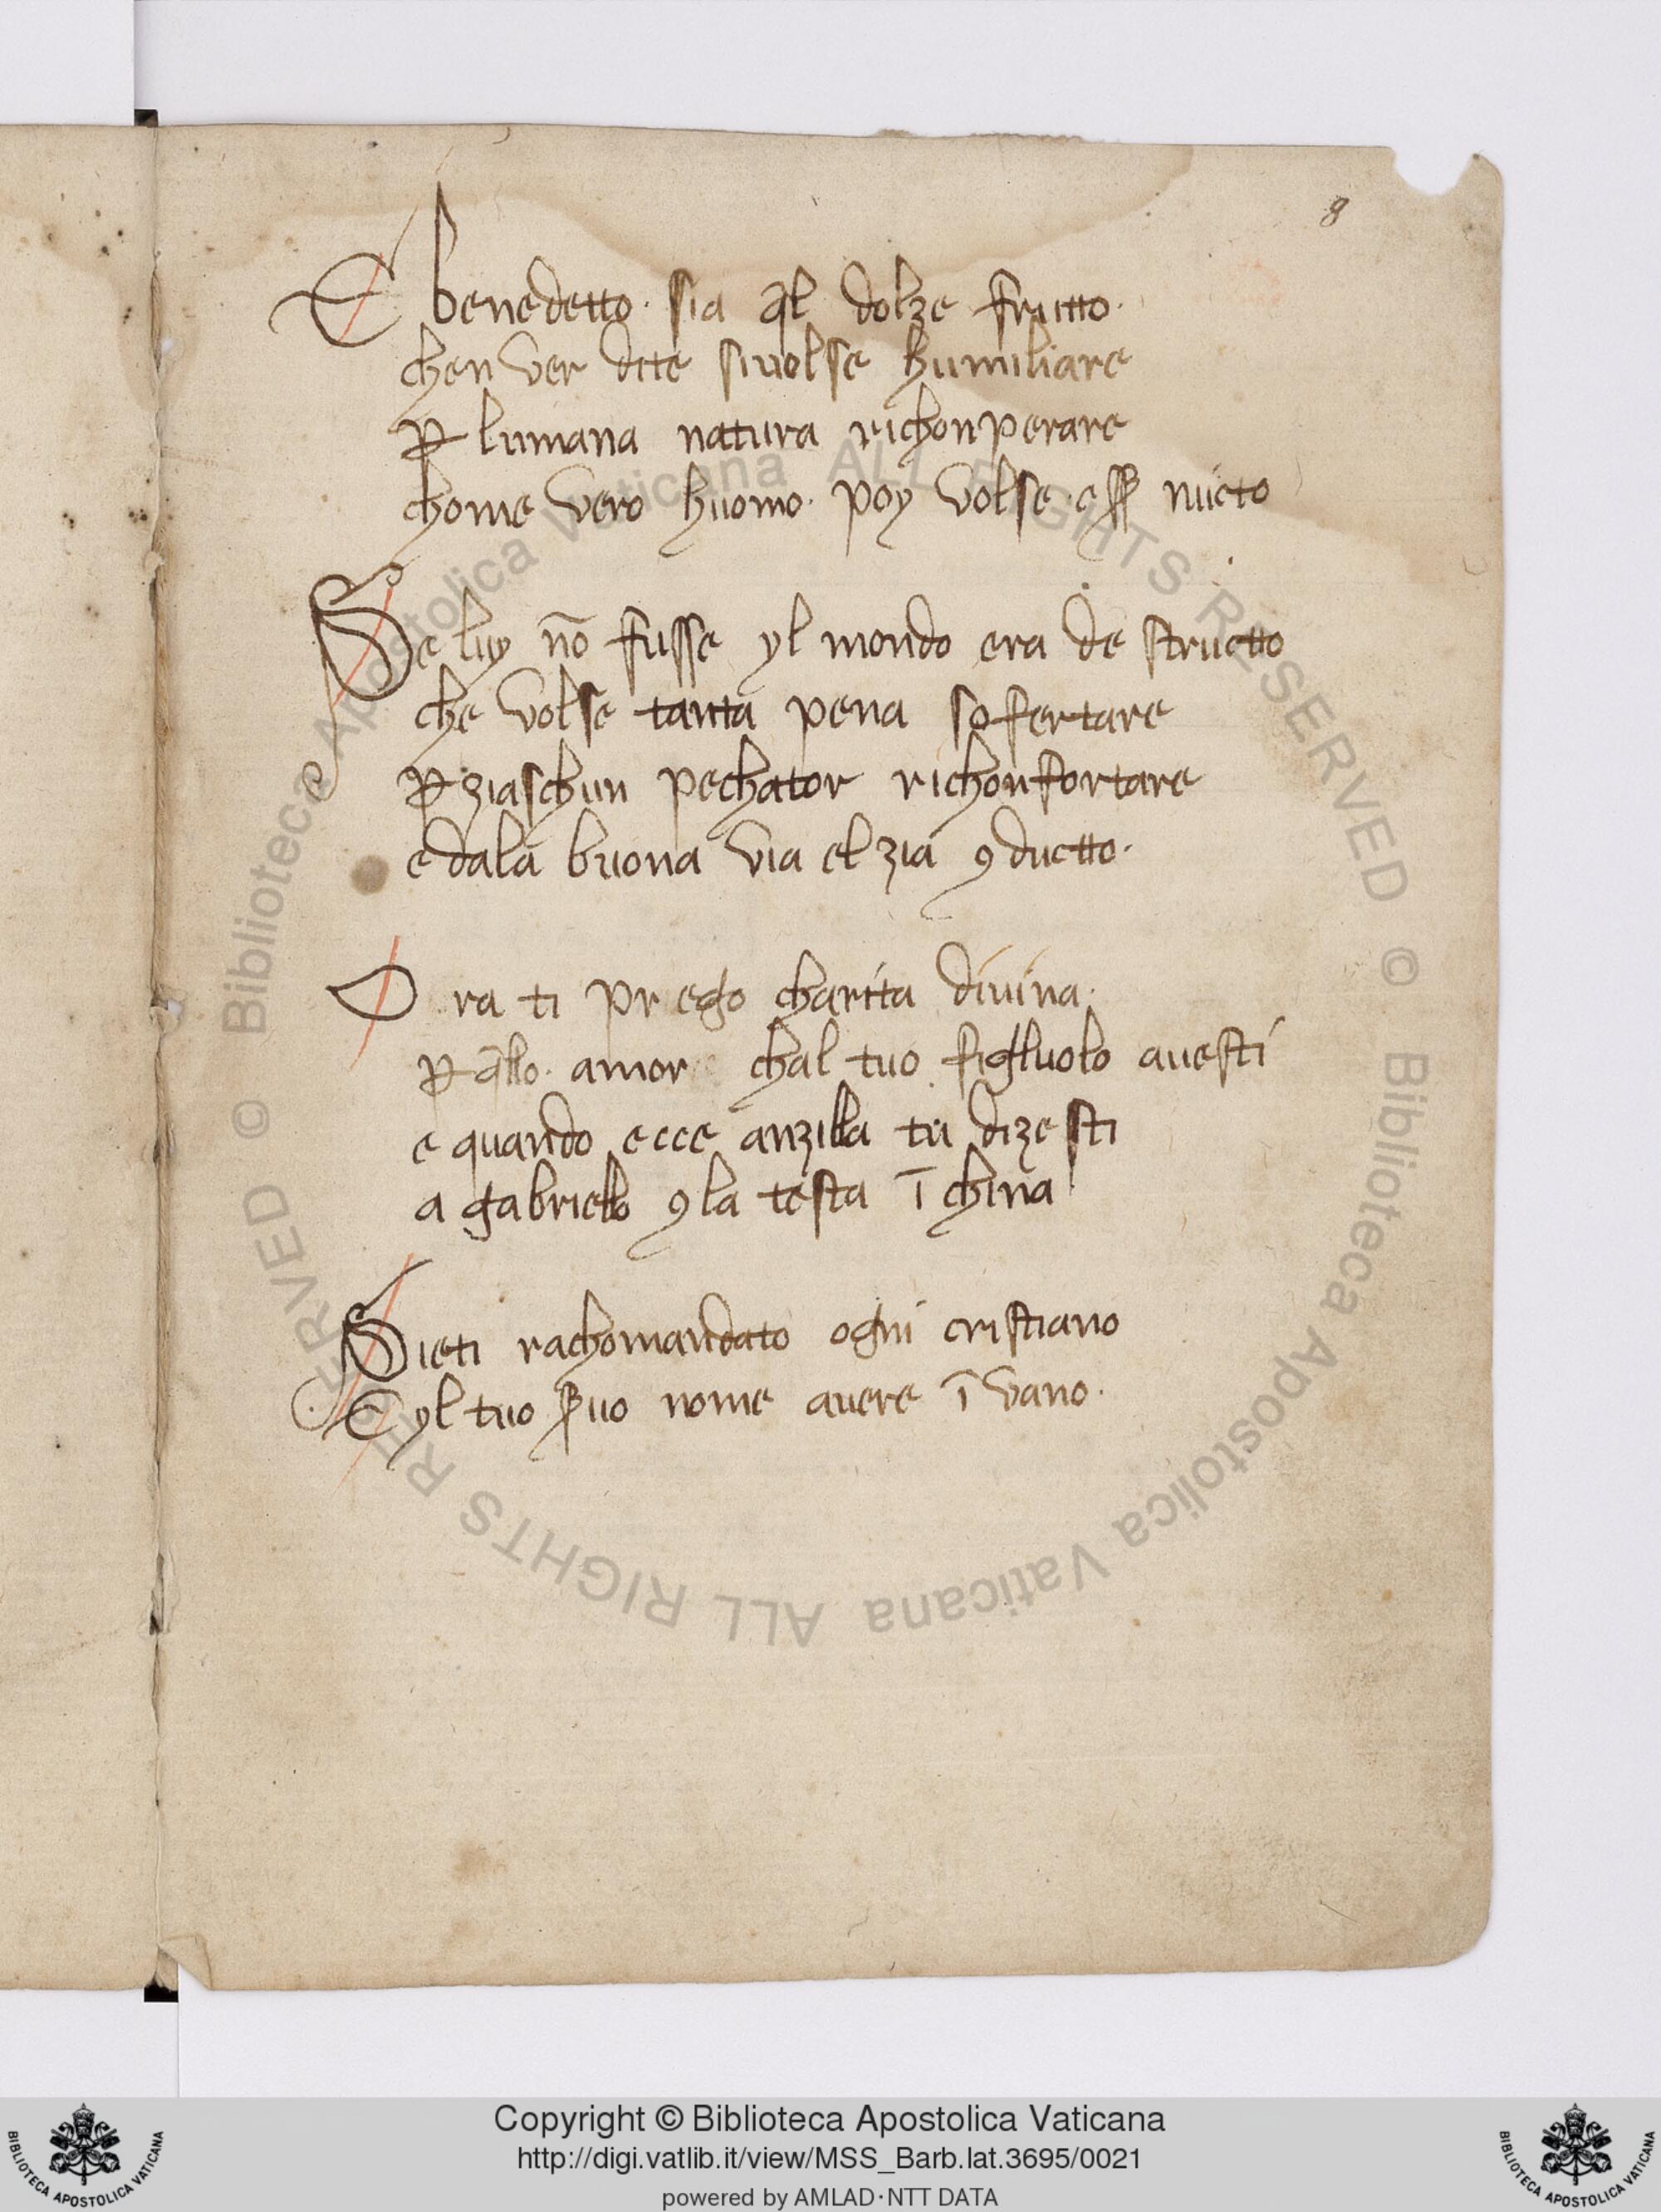 8
E benedetto · sia q̄l dolze frutto ·
chen ver dite siuolse humiliare
ꝑ lumana natura richonperare
chome vero huomo · poy volse · eſſ nucto
Se luy nō fusse yl mondo era de structto
che volse tanta pena sofertare
ꝑ ziaschun pechator richonfortare
e dala buona via el zia ꝯductto ·
O ra ti prego charita diuina ·
ꝑ q̄llo · amor chal tuo figluolo auesti
e quando ecce anzilla tu dizesti
a gabriello ꝯ la testa ī china
Sieti rachomandato ogni cristiano
E yl tuo ꝑuo nome auere ī vano ·
© Biblioteca Apostolica Vaticana ALL RIGHTS RESERVED © Biblioteca Apostolica Vaticana ALL RIGHTS RESERVED
Copyright © Biblioteca Apostolica Vaticana
http://digi.vatlib.it/view/MSS_Barb.lat.3695/0021
powered by AMLAD·NTT DATA
BIBLIOTECA APOSTOLICA VATICANA
BIBLIOTECA APOSTOLICA VATICANA